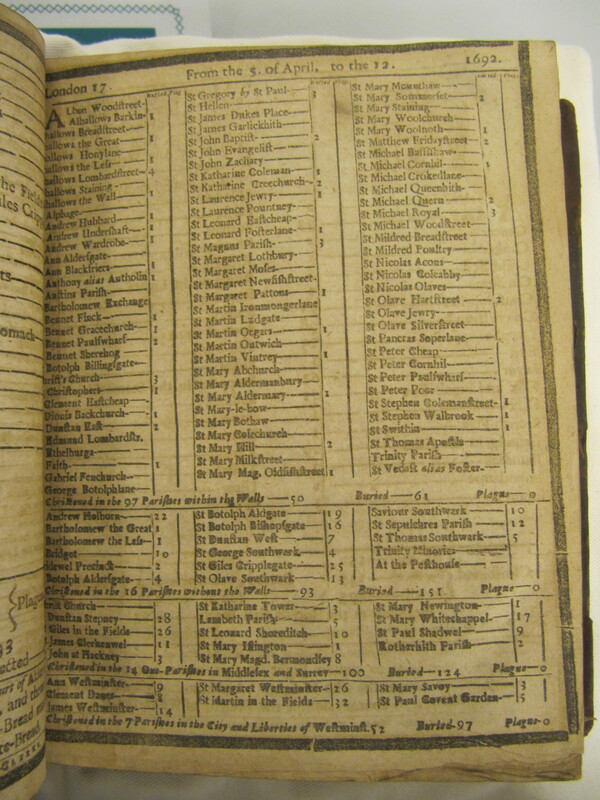 London 17. From the 5. of April, to the 12. 1692.
ALban Woodstreet
Alhallows Barkin 1
hallows Breadstreet
hallows the Great 1
hallows Honylane
hallows the Less 1
hallows Lombardstreet 4
hallows Staining
hallows the Wall 1
Alphage 1
Andrew Hubbard 1
Andrew Undershaft 1
Andrew Wardrobe 1
Ann Aldersgate
Ann Blackfriers 1
Anthony alias Autholin 1
Austins Parish
Bartholomew Exchange
Bennet Finck 1
Bennet Gracechurch 1
Bennet Paulswharf 2
Bennet Sherehog
Botolph Billingsgate
hrist's Church 3
Christophers 1
Clement Eastcheap
Dionis Backchurch 1
Dunstan East 2
Edmund Lombardstr.
Ethelburga
Faith 1
Gabriel Fenchurch
George Botolphlane
St Gregory by St Paul 3
St Hellen
St James Dukes Place
St James Garlickhith
St John Baptist 2
St John Evangelist
St John Zachary
St Katharine Coleman 1
St Katharine Creechurch 2
St Laurence Jewry 1
St Laurence Pountney
St Leonard Eastcheap
St Leonard Fosterlane 1
St Magnus Parish 3
St Margaret Lothbury
St Margaret Moses
St Margaret Newfishstreet
St Margaret Pattons 1
St Martin Ironmongerlane
St Martin Ludgate
St Martin Orgars 1
St Martin Outwich
St Martin Vintrey 1
St Mary Abchurch
St Mary Aldermanbury
St Mary Aldermary 1
St Mary-le-bow
St Mary Bothaw
St Mary Colechurch
St Mary Hill 2
St Mary Milkstreet
St Mary Mag. Oldfishstreet 1
St Mary Mounthaw
St Mary Sommerset 2
St Mary Staining
St Mary Woolchurch
St Mary Woolnoth 1
St Matthew Fridaystreet 2
St Michael Bassishaw
St Michael Cornhil 1
St Michael Crokedlane
St Michael Queenhith
St Michael Quern 2
St Michael Royal 3
St Michael Woodstreet
St Mildred Breadstreet
St Mildred Poultry
St Nicolas Acons
St Nicolas Coleabby
St Nicolas Olaves
St Olave Hartstreet 2
St Olave Jewry
St Olave Silverstreet
St Pancras Soperlane
St Peter Cheap
St Peter Cornhil
St Peter Paulswharf
St Peter Poor
St Stephen Colemanstreet 1
St Stephen Walbrook 1
St Swithin 1
St Thomas Apostle
Trinity Parish
St Vedast alias Foster
Christened in the 97 Parishes within the Walls 50 Buried 61 Plague 0
Andrew Holborn 22
Bartholomew the Great 1
Bartholomew the Less 1
Bridget 10
idewel Precinct 2
Botolph Aldersgate 4
St Botolph Aldgate 19
St Botolph Bishopsgate 16
St Dunstan West 7
St George Southwark 4
St Giles Cripplegate 25
St Olave Southwark 13
Saviour Southwark 10
St Sepulchres Parish 12
St Thomas Southwark 5
Trinity Minories
At the Pesthouse
Christened in the 16 Parishes without the Walls 93 Buried 151 Plague 0
hrist Church
Dunstan Stepney 28
Giles in the Fields 26
James Clerkenwel 11
John at Hackney 3
St Katharine Tower 3
Lambeth Parish 5
St Leonard Shoreditch 10
St Mary Islington 1
St Mary Magd. Bermondsey 8
St Mary Newington 1
St Mary Whitechappel 17
St Paul Shadwel 9
Rotherhith Parish 2
Christened in the 14 Out-Parishes in Middlesex and Surrey 100 Buried 124 Plague 0
Ann Westminster 9
Clement Danes 8
James Westminster 14
St Margaret Westminster 26
St Martin in the Fields 32
St Mary Savoy 3
St Paul Covent Garden 5
Christened in the 7 Parishes in the City and Liberties of Westminst. 52 Buried 97 Plague 0